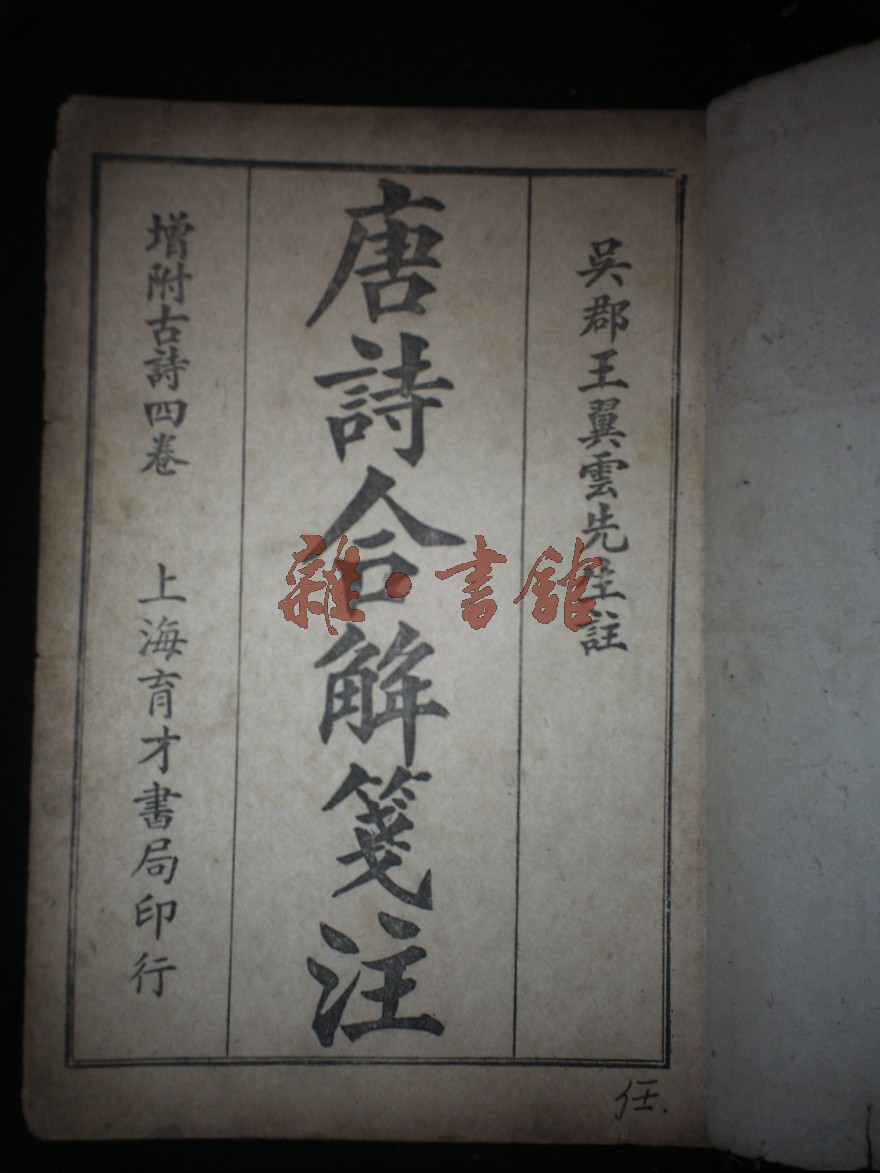 吳郡王翼雲先生註
唐詩合解箋注
增附古詩四卷 上海育才書局印行
雜·書館
任.